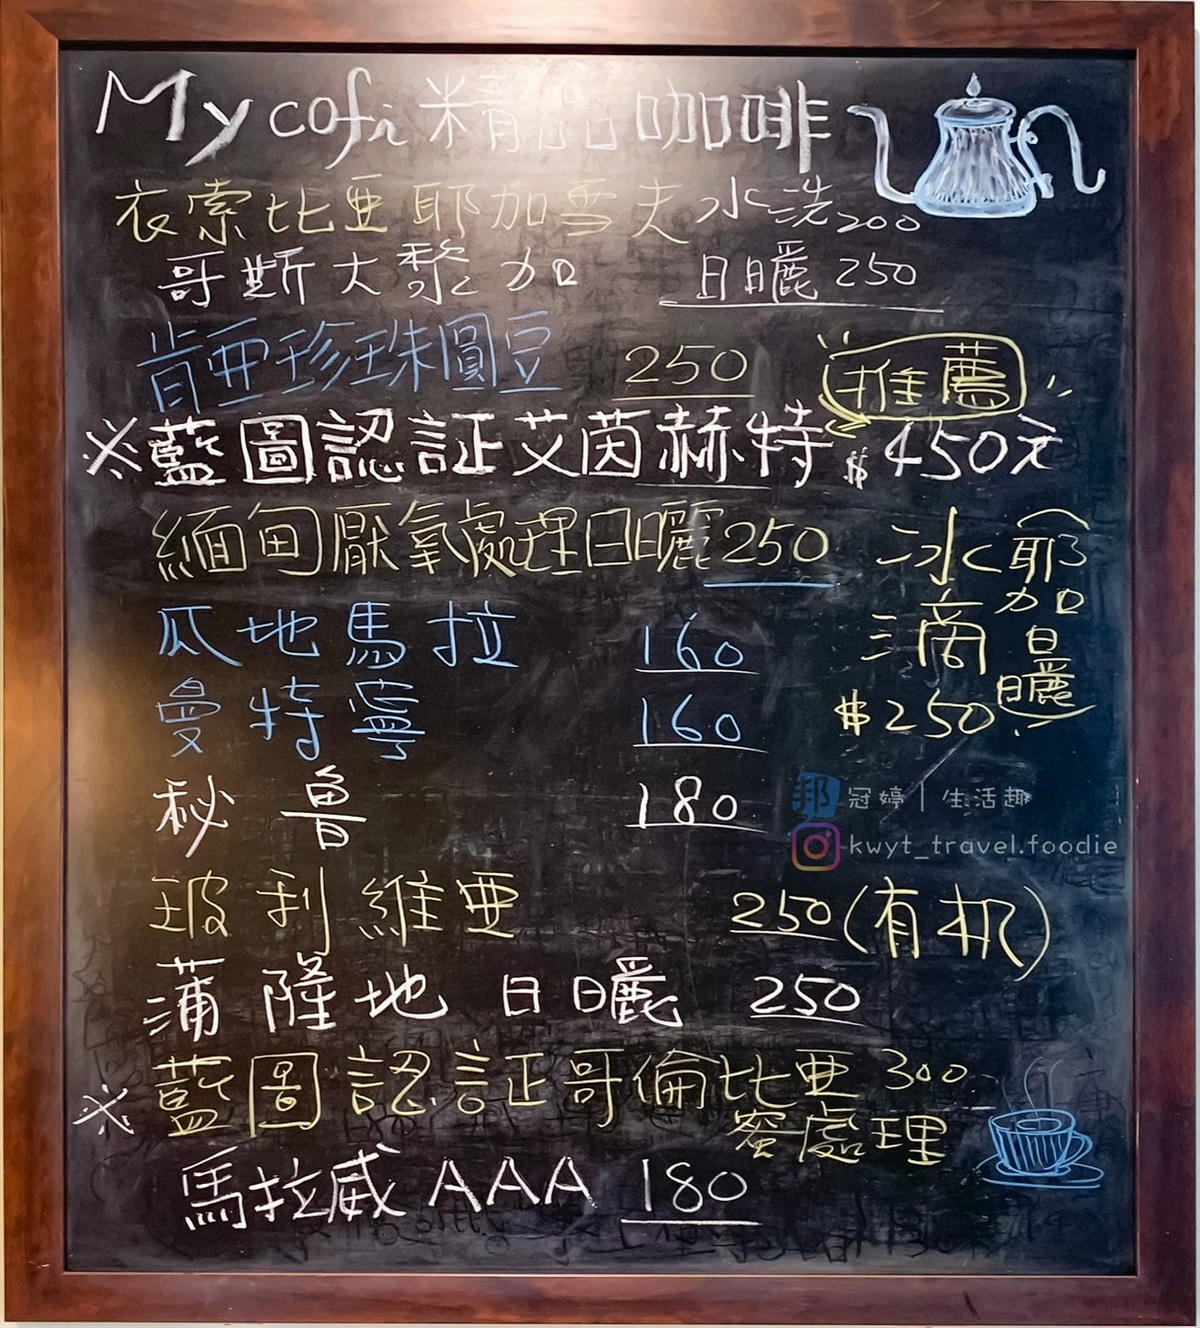 My cofi 精品咖啡
衣索比亞耶加雪夫 水洗 200
哥斯大黎加 日曬 250
肯亞珍珠圓豆 250 推薦
※藍圖認証艾茵赫特 $450元
緬甸厭氧處理日曬 250
冰滴 (耶加日曬)
$250
瓜地馬拉 160
曼特寧 160
秘魯 180
邦 冠婷|生活趣
kwyt_travel.foodie
玻利維亞 250(有机)
蒲隆地 日曬 250
※藍圖認証哥倫比亞 300
蜜處理
馬拉威 AAA 180